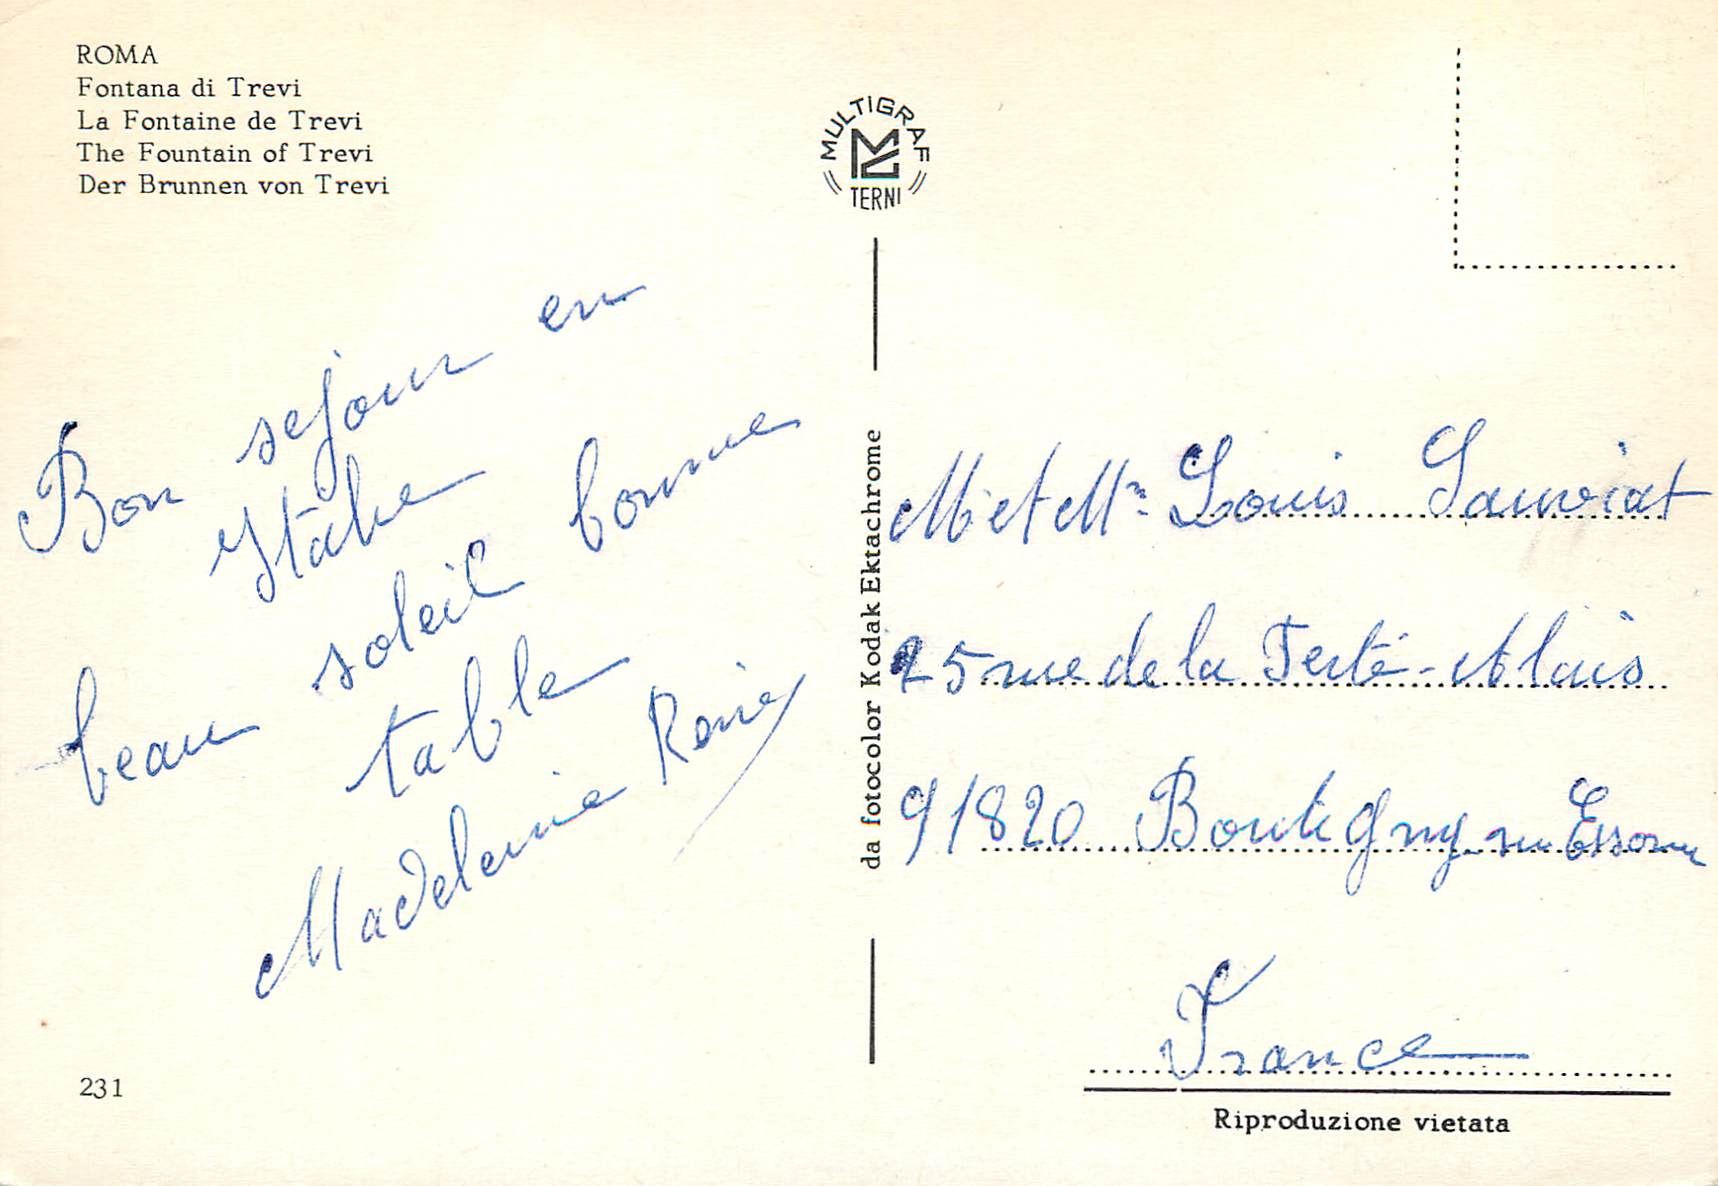 ROMA
Fontana di Trevi
La Fontaine de Trevi
The Fountain of Trevi
Der Brunnen von Trevi
MULTIGRAF
TERNI
Bon sejour en
Italie
beau soleil bonne
table
Madeleine René
da fotocolor Kodak Ektachrome
M et Mme Louis Sauviat
25 rue de la Ferté-Alais
91820 Boutigny sur Essonne
France
231
Riproduzione vietata